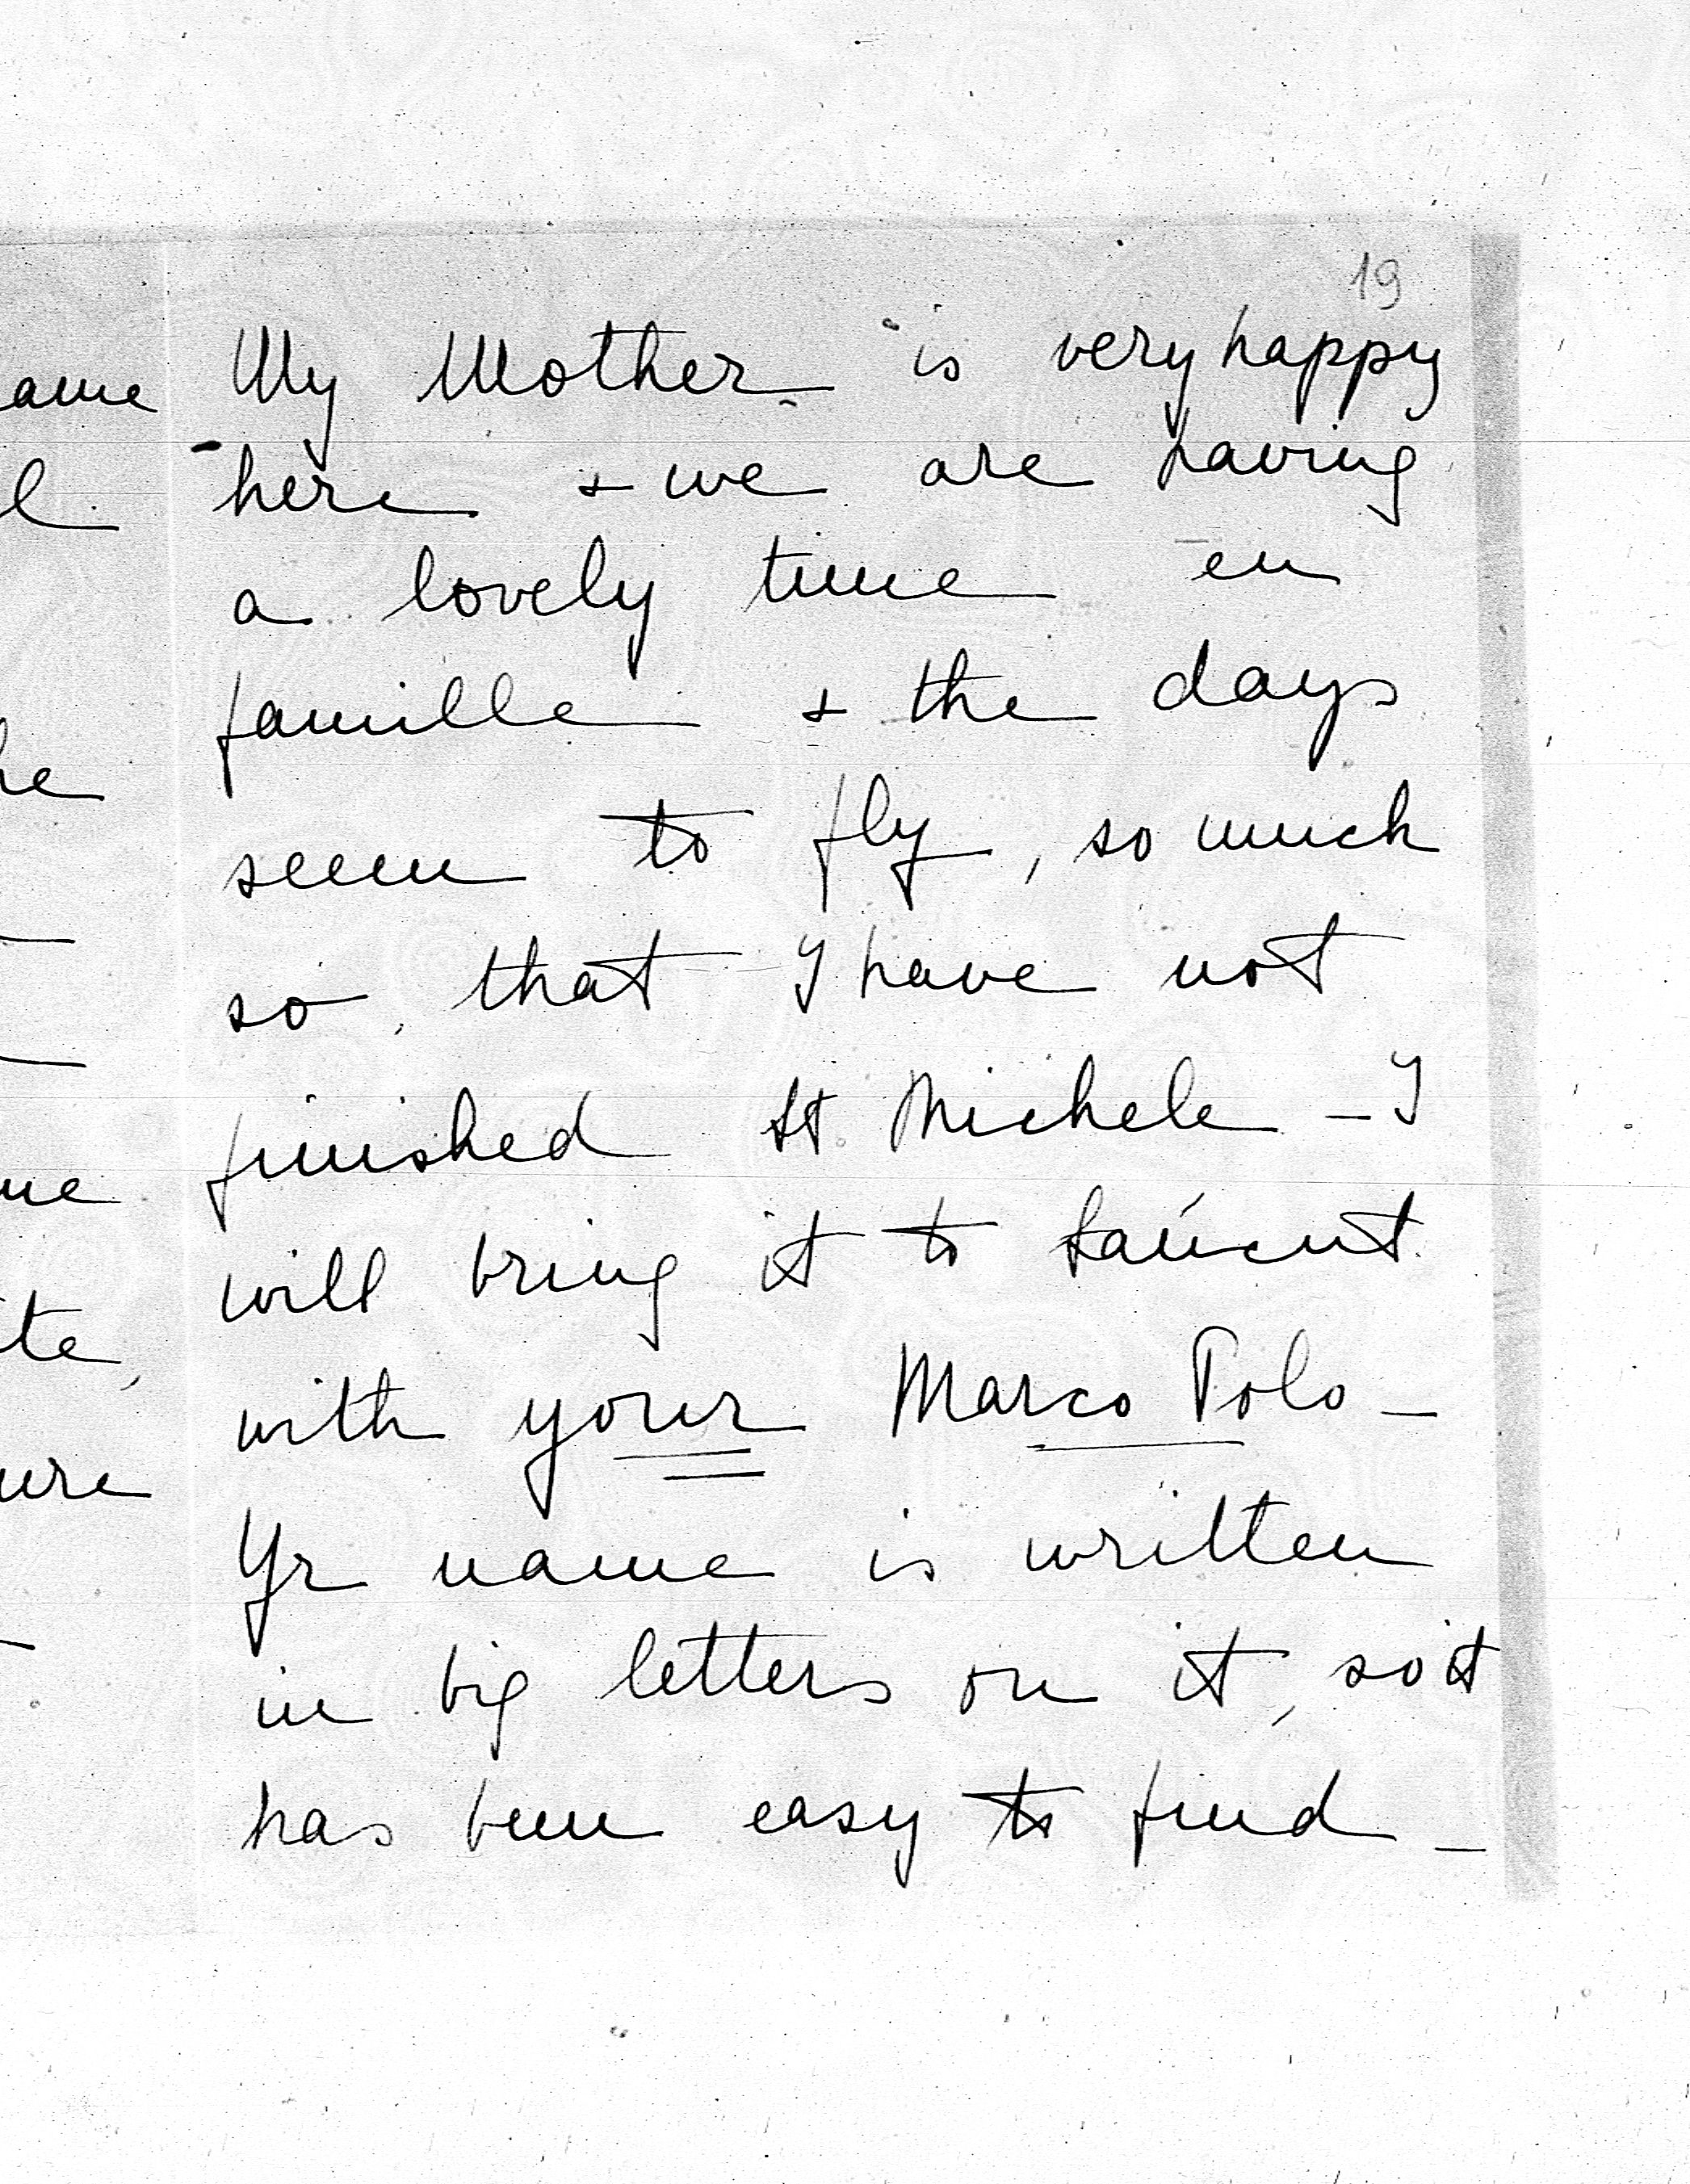 19
ame My Mother is very happy
l here + we are having
a lovely time en
famille + the days
he seem to fly, so much
so, that I have not
finished St Michele - I
ue will bring it to
te, with your Marco Polo -
ure Yr name is written
in big letters on it, so it
has been easy to find -